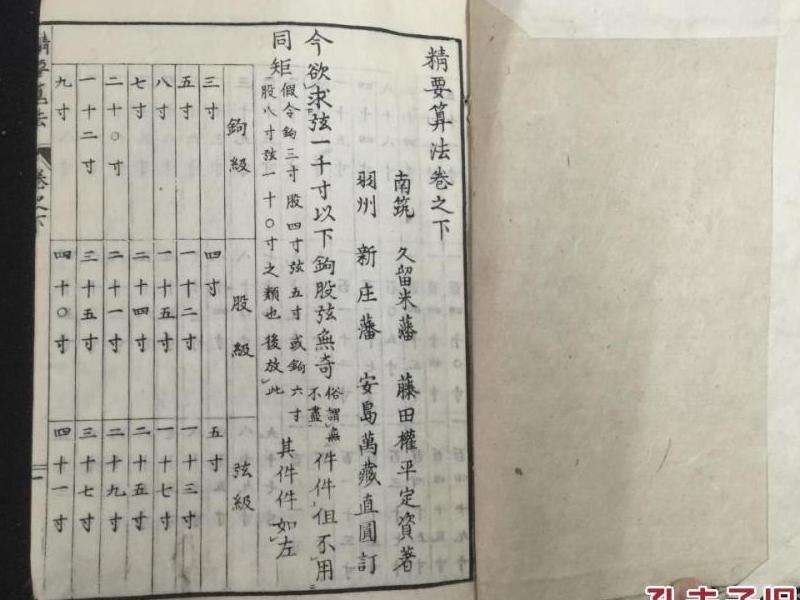 精要算法卷之下
南筑 久留米藩 藤田權平定資著
羽州 新庄藩 安島萬藏直圓訂
今欲求弦一千寸以下鉤股弦無奇俗謂無不盡件件但不用
同矩假令鉤三寸股四寸弦五寸或鉤六寸股八寸弦一十〇寸之類也後放此其件件如左
鉤級 股級 弦級
三寸 四寸 五寸
五寸 一十二寸 一十三寸
八寸 一十五寸 一十七寸
七寸 二十四寸 二十五寸
二十〇寸 二十一寸 二十九寸
一十二寸 三十五寸 三十七寸
九寸 四十〇寸 四十一寸
精要算法 卷之下
孔夫子旧